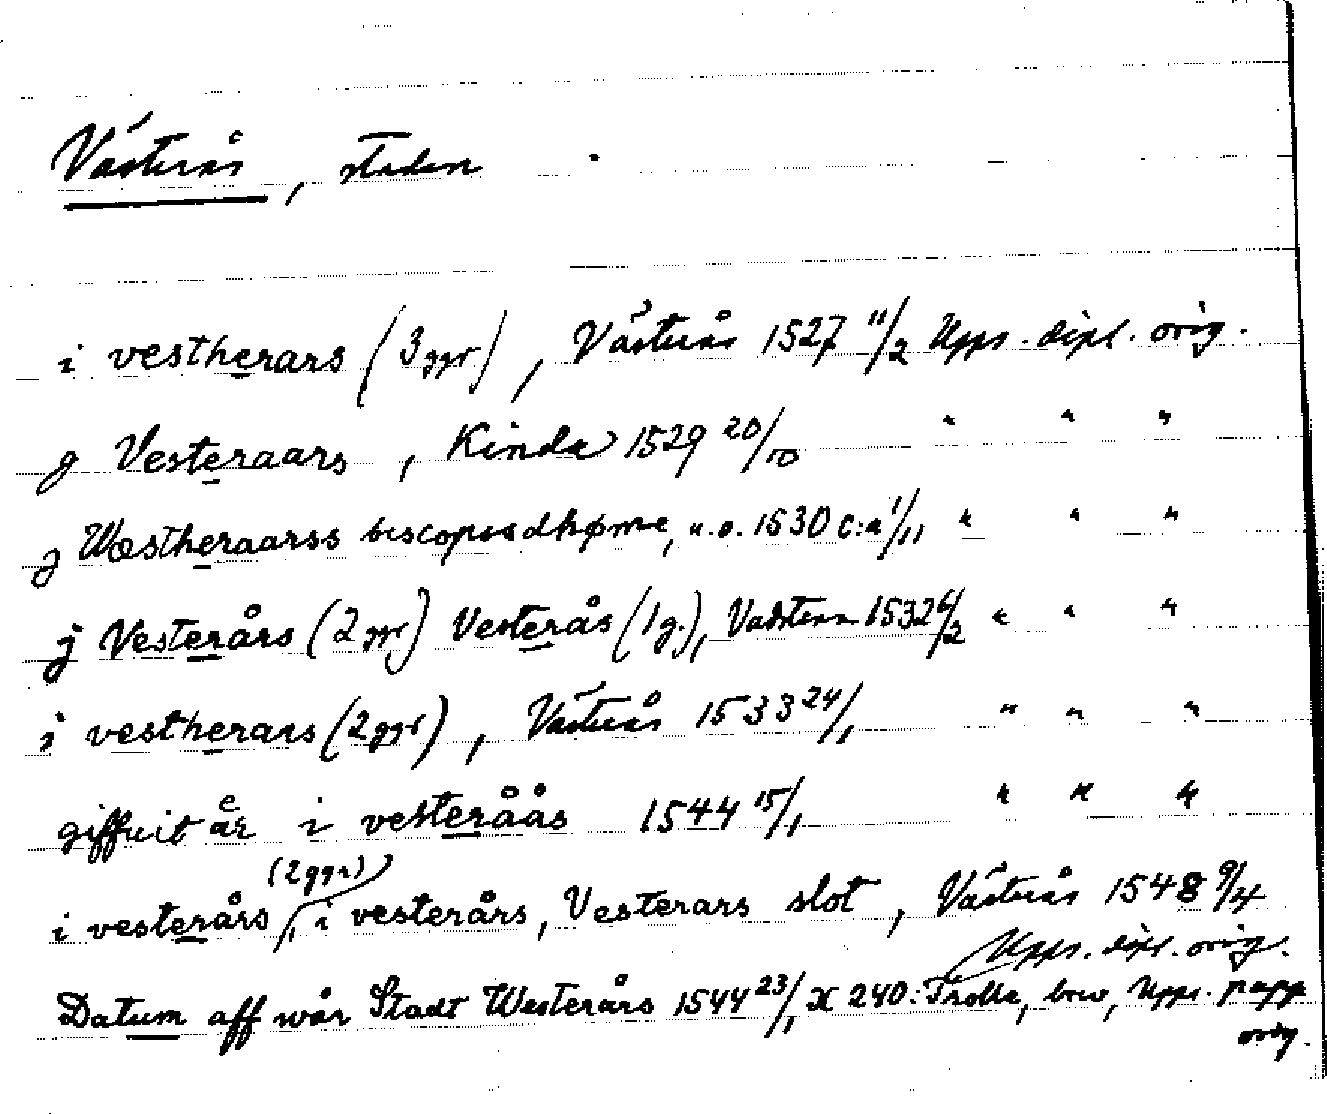 Västerås, staden
i vestherars (3 ggr), Västerås 1527 11/2 Upps. dipl. orig.
j Vesteraars, Kinda 1529 20/10 " " "
j Wæstheraarss biscopsdhøme, u.o. 1530 c:a 1/11 " " "
j Vesterårs (2 ggr) Vesterås (1 g.), Vadstena 1532 6/2 " " "
i vestherars (2 ggr), Västerås 1533 24/1 " " "
giffuit år i vesteråås 1544 15/1 " " "
i vesterårs (2 ggr), i vesterårs, Vesterars slot, Västerås 1548 9/4
Upps. dipl. orig.
Datum aff wår Stadt Westerårs 1544 23/1 X 240: Trolle, brev, Upps. papp
orig.